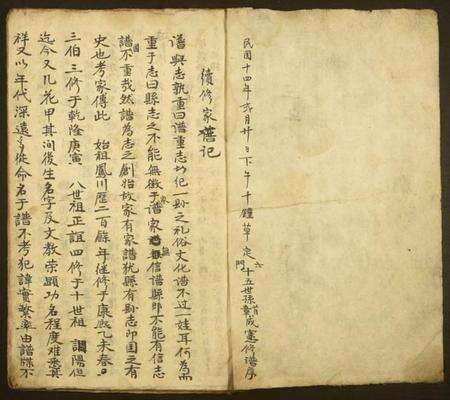 民國十四年弍月廿日下午十鐘草定
六門十五世孫成憲修譜序
續修家舊記
譜與志孰重曰譜重志以紀一縣之礼俗文化譜不过一姓耳何為而
重于志曰縣志之不能無徵于譜家無信譜縣即不能有信志
譜不重哉然譜為志之創始故家有家譜犹縣有縣志即国之有
史也考家傳此 始祖鳳川歷二百餘年從修于康熙乙未春日
三伯三修于乾隆庚寅 八世祖正誼四修于十世祖 調陽但
迄今又几花甲其间後生名字及文教荣顯功名程度难悉其
祥又以年代深遠從命名于譜不考犯諱實繁率由譜牒不